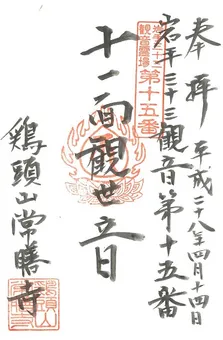 奉拜 平成二十八年四月十四日
岩手三十三観音第十五番
第十五番
十一面觀世音
鶏頭山常勝寺